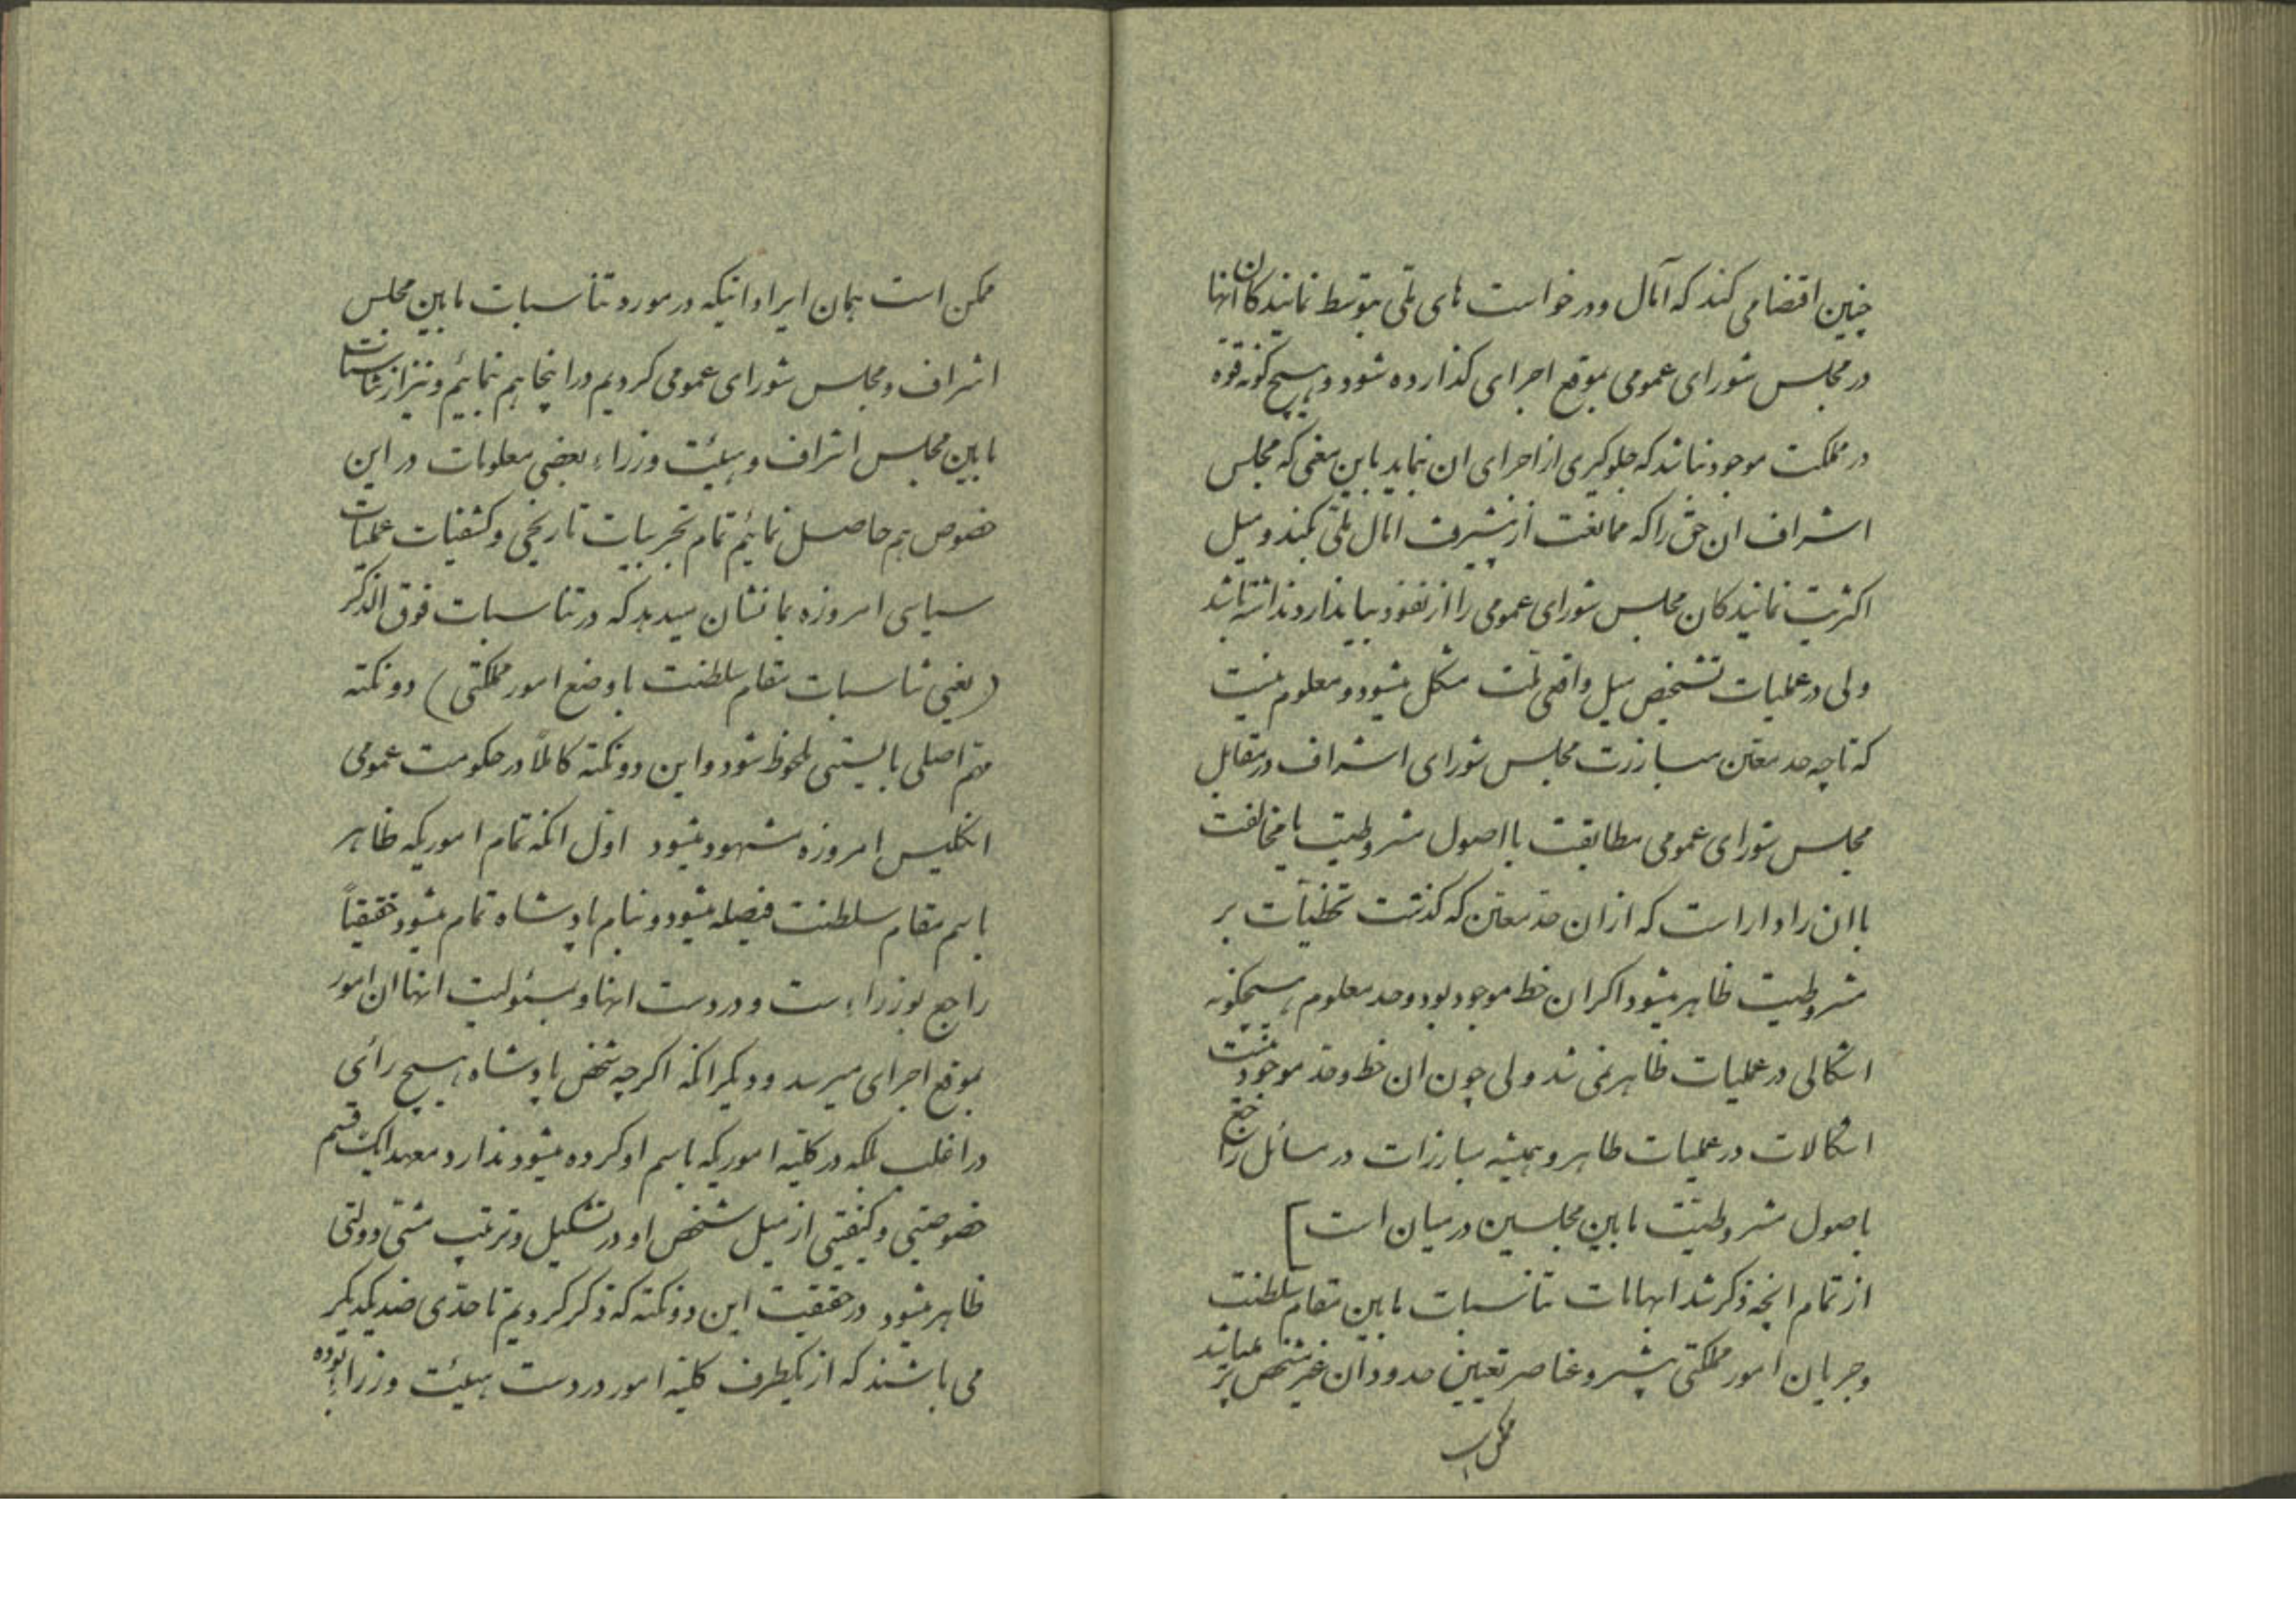 چنین اقتضا می کند که آمال و درخواست های ملی بتوسط نمایندکان انها
در مجلس شورای عمومی بموقع اجرای کذارده شود و هیچ کونه قوه
در مملکت موجود نباشد که جلوکیری از اجرای ان نماید باین معنی که مجلس
اشراف ان حق را که ممانعت از پیشرفت امال ملی بکند و میل
اکثریت نمایندکان مجلس شورای عمومی را از نفوذ بیاندازد نداشته باشد
ولی در عملیات تشخیص میل واقعی ملت مشکل میشود و معلوم نیست
که تا چه حد معین مبارزت مجلس شورای اشراف در مقابل
مجلس شورای عمومی مطابقت با اصول مشروطیت یا مخالفت
با ان را دارا است که از ان حد معین که کذشت تخطیات بر
مشروطیت ظاهر میشود اکر ان خط موجود بود و حد معلوم هیچکونه
اشکالی در عملیات ظاهر نمی شد ولی چون ان خط و حد موجود نیست
اشکالات در عملیات ظاهر و همیشه مبارزات در مسائل راجع
باصول مشروطیت مابین مجلسین در میان است]
از تمام انچه ذکر شد ابهامات تناسبات مابین مقام سلطنت
و جریان امور مملکتی پیشرو عناصر تعیین حدود ان غیر مشخص تر میباشد
ممکن است
ممکن است همان ایراداتیکه در مورد تناسبات مابین مجلس
اشراف و مجلس شورای عمومی کردیم در اینجا هم نمائیم و نیز از تناسبات
مابین مجلس اشراف و هیئت وزراء بعضی معلومات در این
خصوص هم حاصل نمائیم تمام تجربیات تاریخی و کشفیات عملیات
سیاسی امروزه بما نشان میدهد که در تناسبات فوق الذکر
(یعنی تناسبات مقام سلطنت با وضع امور مملکتی) دو نکته
مهم اصلی بایستی ملحوظ شود و این دو نکته کاملاً در حکومت عمومی
انکلیس امروزه مشهود میشود اول انکه تمام اموریکه ظاهر
باسم مقام سلطنت فیصله میشود و بنام پادشاه تمام میشود حقیقتاً
راجع بوزراء ست و در دست انها و بمسئولیت انها ان امور
بموقع اجرای میرسد و دیکر انکه اکر چه شخص پادشاه هیچ رائی
در اغلب بلکه در کلیه اموریکه باسم او کرده میشود ندارد معهذا یک قسم
خصوصیتی و کیفیتی از میل شخص او در تشکیل و ترتیب مشی دولتی
ظاهر میشود در حقیقت این دو نکته که ذکر کردیم تا حدی ضد یکدیکر
می باشند که از یکطرف کلیه امور در دست هیئت وزراء بوده